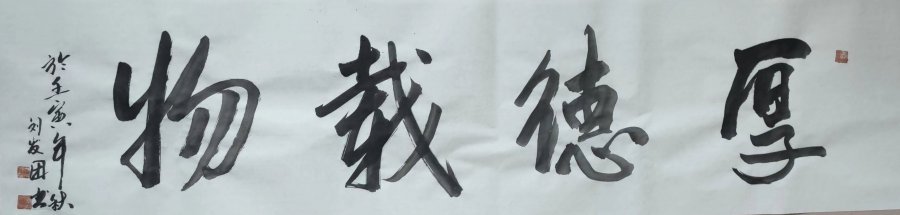 厚德载物
于壬寅年秋
刘发团书